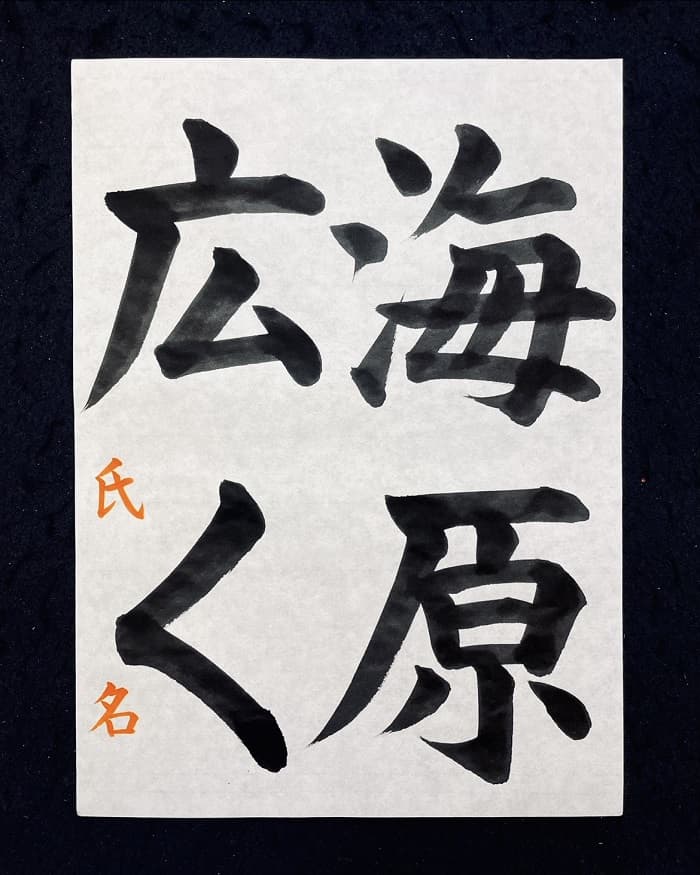 海原
広く
氏名